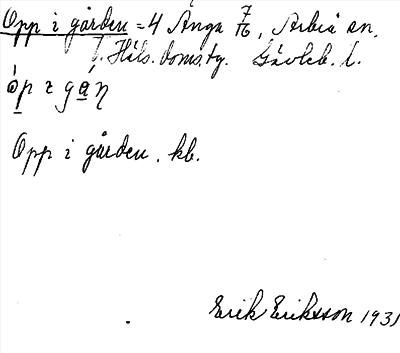 Opp i gården = 4 Änga 7/16, Arbrå sn.
Häls. doms. tg. Gävleb. l.
óp i gán
Opp i gården. kb.
Erik Eriksson 1931